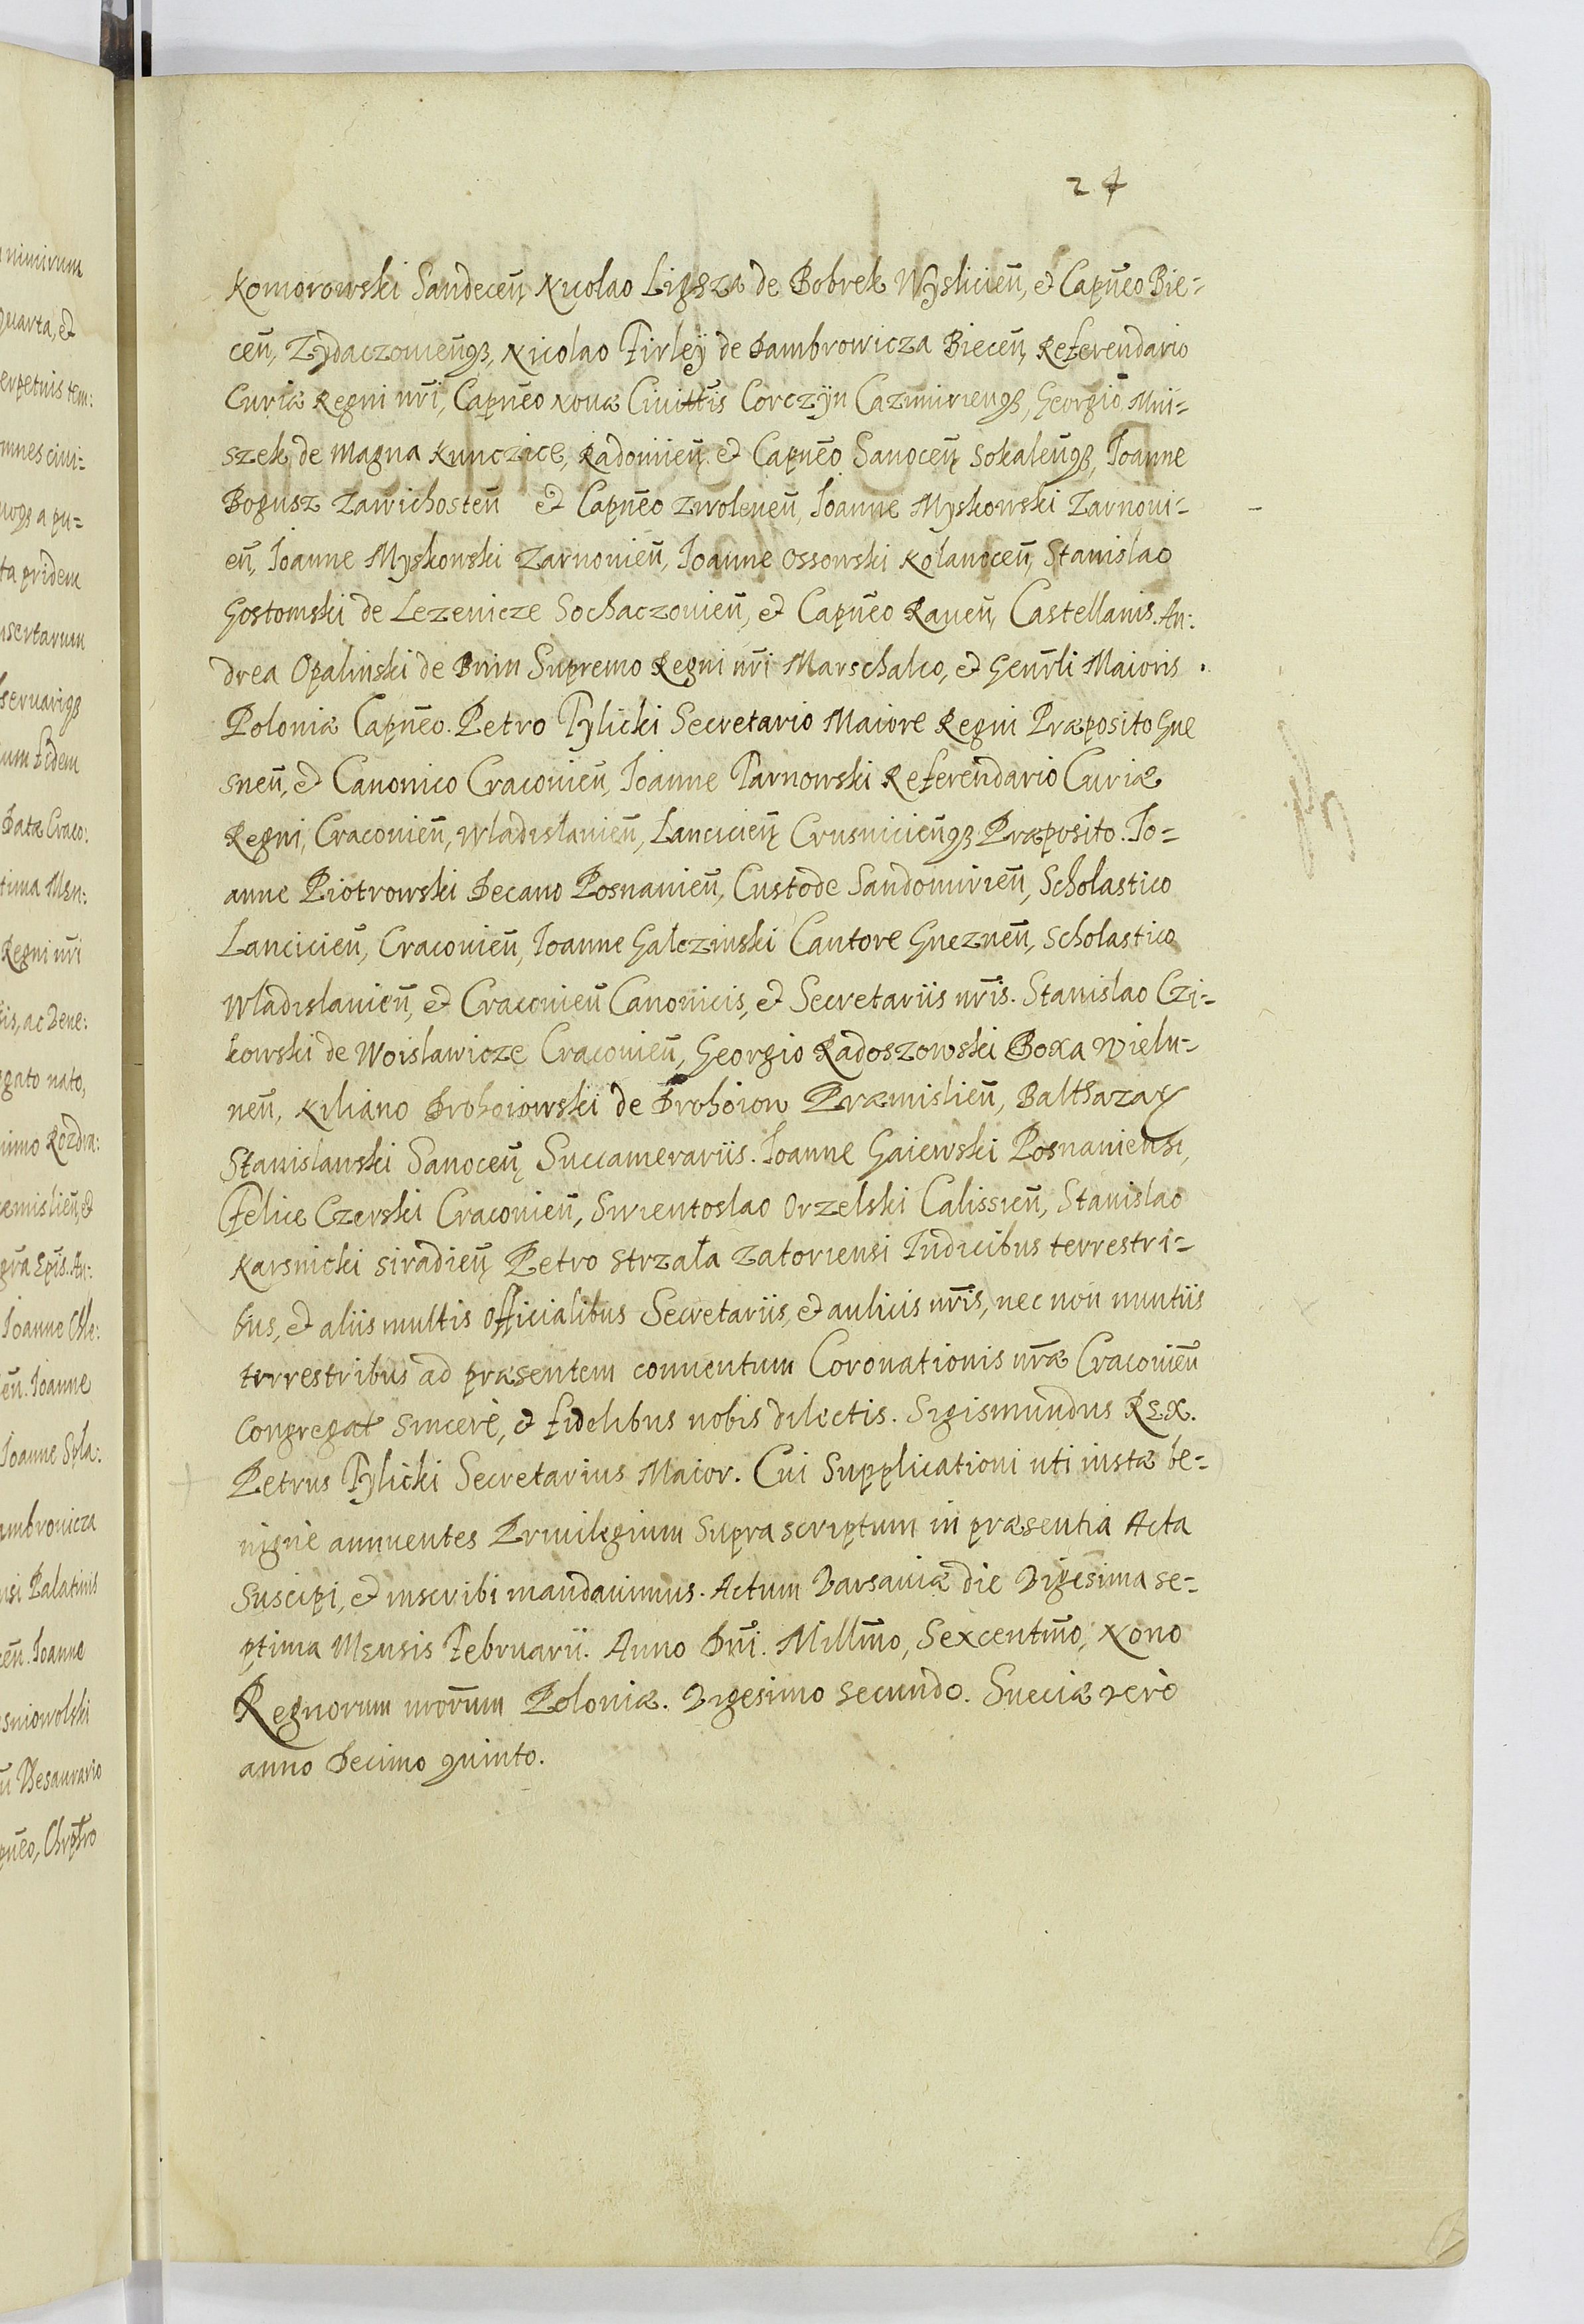 24
Komorowski Sandeceñ, Nicolao Ligęza de Bobrek Wyslicieñ, et Capñeo Bie=
ceñ, Zydaczovieñqꝫ, Nicolao Firleÿ de Dambrowicza Bieceñ, Referendario
Curiæ Regni nr̃i, Capñeo Novæ Civittis Corczÿn Cazimirieñqꝫ, Georgio Mni=
szek de Magna Kunczice, Radomieñ et Capñeo Sanoceñ Sokaleñqꝫ, Ioanne
Bogusz Zawichosteñ et Capñeo Zwoleneñ, Ioanne Myskowski Zarnoui=
eñ, Ioanne Myskowski Zarnouieñ, Ioanne Ossowski Kolanoceñ, Stanislao
Gostomski de Lezenicze Sochaczouieñ, et Capñeo Raueñ, Castellanis. An:
drea Opalinski de Bnin Supremo Regni nr̃i Marschalco, et Genr̃li Maioris
Poloniæ Capñeo. Petro Tylicki Secretario Maiore Regni Præposito Gne
sneñ, et Canonico Cracouieñ, Ioanne Tarnowski Referendario Curiæ
Regni, Cracouieñ, Wladislauieñ, Lancicieñ Crusuicieñqꝫ Præposito. Io=
anne Piotrowski Decano Posnanieñ, Custode Sandomirieñ, Scholastico
Lancicieñ, Cracouieñ, Ioanne Galczinski Cantore Gnezneñ, Scholastico
Wladislauieñ, et Cracouieñ Canonicis, et Secretariis nr̃is. Stanislao Czi=
kowski de Woislawicze Cracouieñ, Georgio Radoszowski Boxa Wielu=
neñ, Kiliano Drohoiowski de Drohoiow Præmislieñ, Balthazar
Stanislawski Sanoceñ Succamerariis. Ioanne Gaiewski Posnaniensi,
Felice Czerski Cracouieñ, Swientoslao Orzelski Calissieñ, Stanislao
Karsnicki Siradieñ Petro Strzała Zatoriensi Iudicibus terrestri=
bus, et aliis multis Officialibus Secretariis, et aulicis nr̃is, nec non nuntiis
terrestribus ad præsentem conuentum Coronationis nr̃æ Cracouieñ
Congregat sincerè, et fidelibus nobis dilectis. Sigismundus Rex.
Petrus Tylicki Secretarius Maior. Cui Supplicationi uti iustæ be=
nignè annuentes Priuilegium Supra scriptum in præsentia Acta
Suscipi, et inscribi mandauimus. Actum Varsauiæ die Vigesima se=
ptima Mensis Februarii. Anno Dñi. Millm̃o, Sexcentm̃o, Nono
Regnorum nror̃um Poloniæ. Vigesimo secundo. Sueciæ verò
anno Decimo quinto.